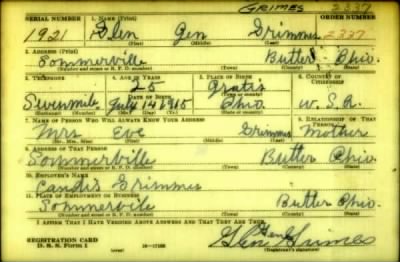 GRIMES 2337
SERIAL NUMBER 1. NAME (Print) ORDER NUMBER
1921 Glen Gen Grimmes 2337
(First) (Middle) (Last)
2. ADDRESS (Print)
Sommerville Butler Ohio.
(Number and street or R. F. D. number) (Town) (County) (State)
3. TELEPHONE 4. AGE IN YEARS 5. PLACE OF BIRTH 6. COUNTRY OF CITIZENSHIP
25 Gratis
DATE OF BIRTH (Town or county)
Sevenmile July 14 1915 Ohio. U. S. A.
(Exchange) (Number) (Mo.) (Day) (Yr.) (State or country)
7. NAME OF PERSON WHO WILL ALWAYS KNOW YOUR ADDRESS 8. RELATIONSHIP OF THAT PERSON
Mrs Eve Grimmes Mother
(Mr., Mrs., Miss) (First) (Middle) (Last)
9. ADDRESS OF THAT PERSON
Sommerville Butler Ohio.
(Number and street or R. F. D. number) (Town) (County) (State)
10. EMPLOYER'S NAME
Grimmes
11. PLACE OF EMPLOYMENT OR BUSINESS
Sommerville Butler Ohio.
(Number and street or R. F. D. number) (Town) (County) (State)
I AFFIRM THAT I HAVE VERIFIED ABOVE ANSWERS AND THAT THEY ARE TRUE.
REGISTRATION CARD
D. S. S. Form 1 Glen Gen Grimes
(over) (Registrant's signature)